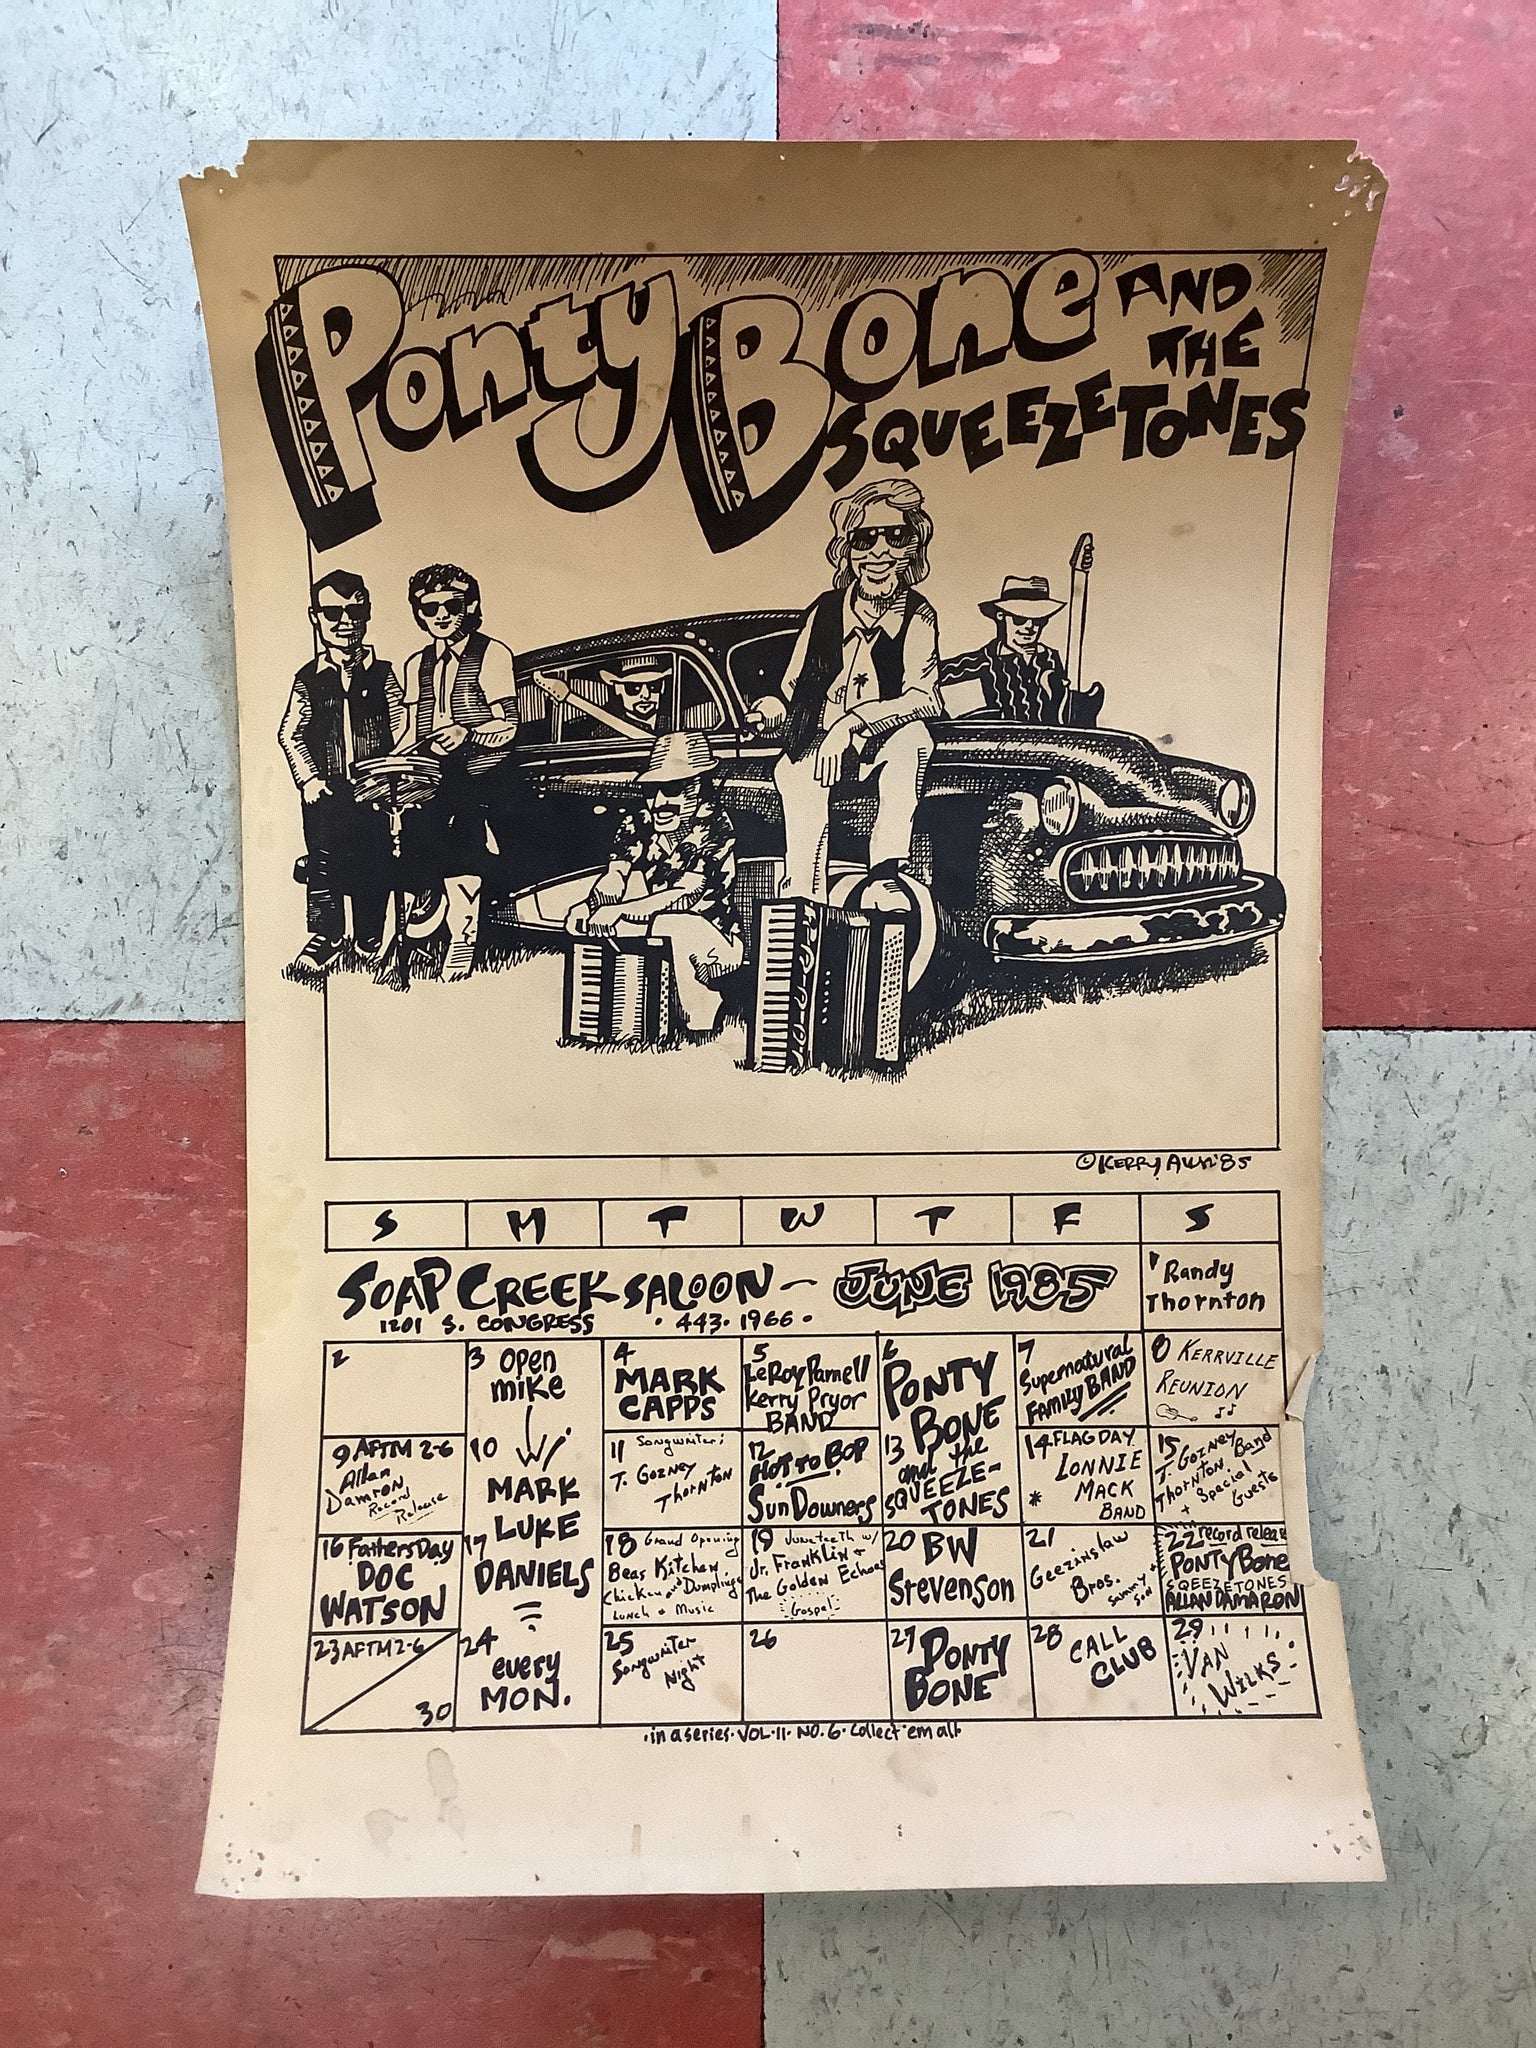 Ponty Bone AND
THE
SQUEEZETONES
© KERRY AWN '85
S M T W T F S
SOAP CREEK SALOON — JUNE 1985
1201 S. CONGRESS • 443-1966 •
1 Randy
Thornton
2
3 open
mike
w/
10 MARK
LUKE
17 DANIELS
24 every
MON.
4
MARK
CAPPS
5
LeRoy Parnell
Kerry Pryor
BAND
6
PONTY
BONE
13 and the
SQUEEZE-
TONES
7
Supernatural
FAMILY BAND
8 KERRVILLE
REUNION
9 AFTM 2-6
Allan
Damron
Record
Release
11 Songwriter:
T. Gozney
Thornton
12
HOT to BOP
Sun Downers
14 FLAG DAY
LONNIE
* MACK
BAND
15
T. Gozney
Thornton Band
+ Special
Guests
16 Fathers Day
DOC
WATSON
18 Grand Opening
Bear Kitchen
Chicken and Dumplings
Lunch + Music
19 Juneteenth w/
Jr. Franklin +
The Golden Echoes
Gospel
20 BW
Stevenson
21
Geezinslaw
Bros. Sammy +
Son
22 record release
PONTY Bone
SQEEZETONES
ALLAN DAMARON
23 AFTM 2-6
30
25
Songwriter
Night
26
27 PONTY
BONE
28 CALL
CLUB
29
VAN
WILKS
• in a series • VOL • 11 • NO. 6 • collect 'em all •